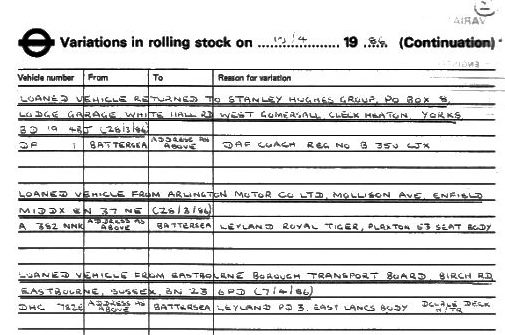 Variations in rolling stock on 13/4 19 86 (Continuation)
Vehicle number From To Reason for variation
LOANED VEHICLE RETURNED TO STANLEY HUGHES GROUP, PO BOX 8,
LODGE GARAGE WHITE HALL RD WEST GOMERSALL CLECK HEATON, YORKS
BD 19 4BJ (28/3/86)
DF 1 BATTERSEA ADDRESS AS ABOVE DAF COACH REG NO B 350 LJX
LOANED VEHICLE FROM ARLINGTON MOTOR CO LTD, MOLLISON AVE, ENFIELD
MIDDX EN 37 NE (28/3/86)
A 382 NNK ADDRESS AS ABOVE BATTERSEA LEYLAND ROYAL TIGER, PLAXTON 53 SEAT BODY
LOANED VEHICLE FROM EASTBOURNE BOROUGH TRANSPORT BOARD, BIRCH RD,
EASTBOURNE, SUSSEX, BN 23 6PD (7/4/86)
DHC 782E ADDRESS AS ABOVE BATTERSEA LEYLAND PD 3, EAST LANCS BODY DOUBLE DECK